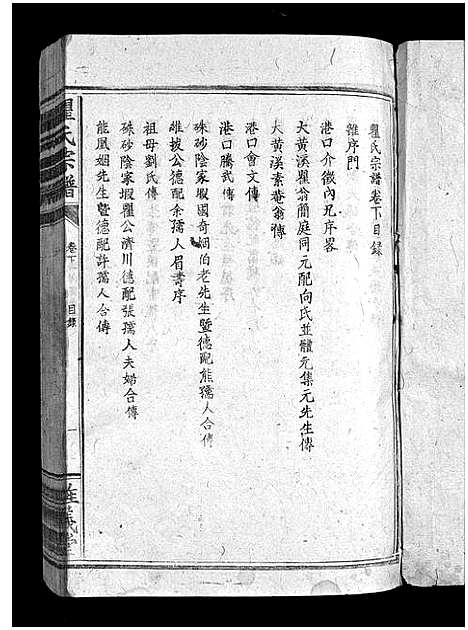 瞿氏宗譜卷下目録
雜序門
港口介徵內兄序畧
大黄溪瞿翁簡庭同元配向氏並體元集元先生傳
大黄溪素菴翁傳
港口會文傳
港口騰武傳
雄坡公德配余孺人眉壽序
硃砂陰家塅國奇姻伯老先生暨德配熊孺人合傳
祖母劉氏傳
硃砂陰家塅瞿公濟川德配張孺人夫婦合傳
能鳳姻先生暨德配許孺人合傳
瞿氏宗譜
卷下
目録
一